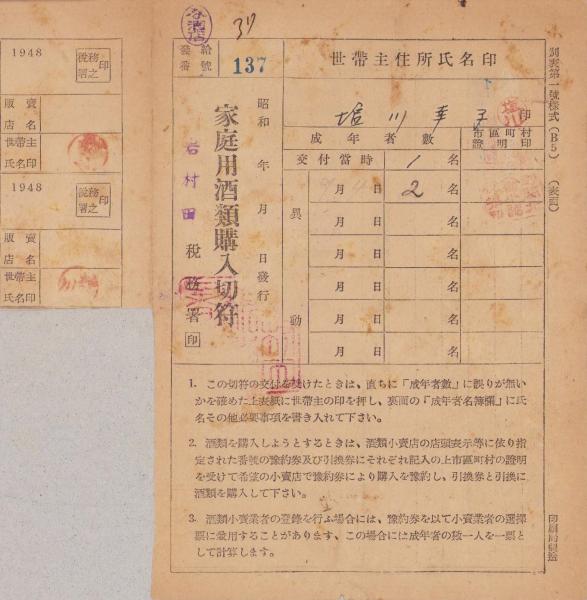 1948
税務署之印
販賣
店名
世帶主
氏名印
1948
税務署之印
販賣
店名
世帶主
氏名印
37
發給
番號
137
家庭用酒類購入切符
昭和 年 月 日發行
岩村田 税務署 印
世帶主住所氏名印
塩川幸子 印
成年者數
市區町村
證明印
交付當時 1 名
異動
月 4日 2 名
月 日 名
月 日 名
月 日 名
月 日 名
月 日 名
1. この切符の交付を受けたときは、直ちに「成年者數」に誤りが無い
かを確めた上表紙に世帶主の印を押し、裏面の「成年者名簿欄」に氏
名その他必要事項を書き入れて下さい。
2. 酒類を購入しようとするときは、酒類小賣店の店頭表示等に依り指
定された番號の豫約券及び引換券にそれぞれ記入の上市區町村の證明
を受けて希望の小賣店で豫約券により購入を豫約し、引換券と引換に
酒類を購入して下さい。
3. 酒類小賣業者の登錄を行ふ場合には、豫約券を以て小賣業者の選擇
票に兼用することがあります、この場合には成年者の數一人を一票と
して計算します。
別表第一號樣式(B5) (表面)
印刷局製造